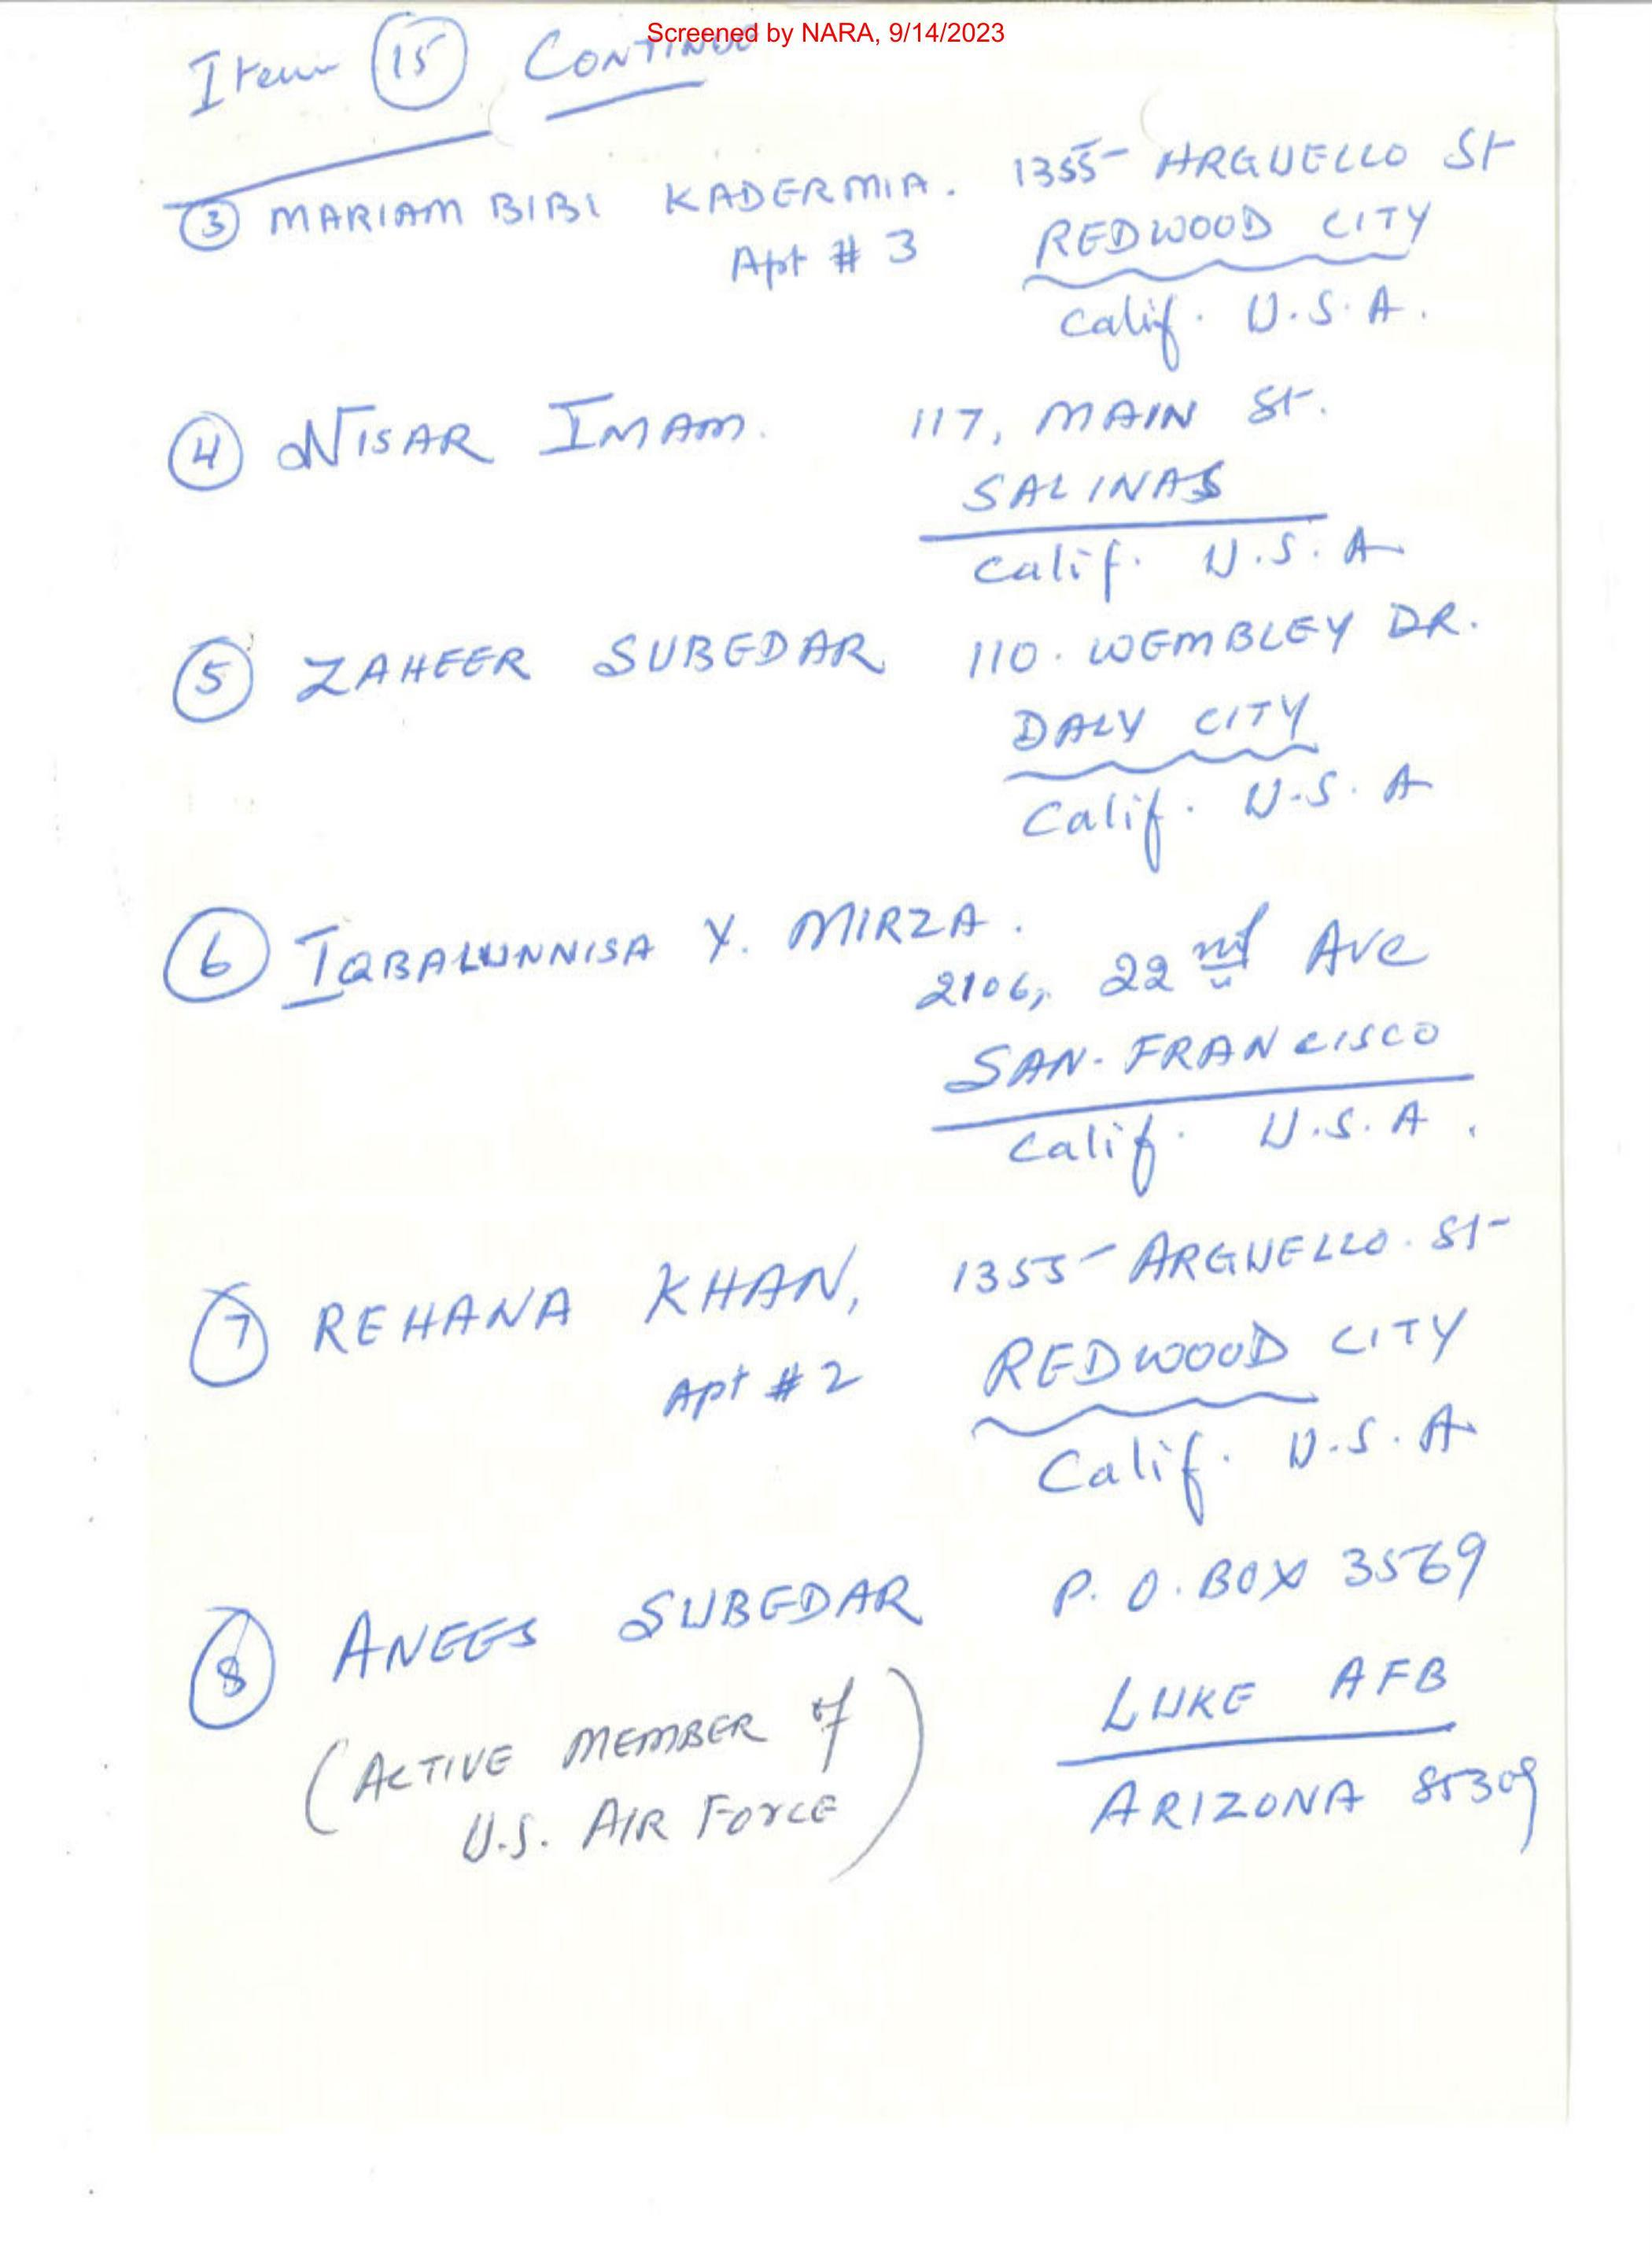 Screened by NARA, 9/14/2023
Item 15 CONTINUE
3 MARIAM BIBI KADERMIA. 1355- ARGUELLO St
Apt # 3 REDWOOD CITY
Calif. U.S.A.
4 NISAR IMAM. 117, MAIN St.
SALINAS
Calif. U.S.A
5 ZAHEER SUBEDAR 110. WEMBLEY DR.
DALY CITY
Calif. U.S.A
6 IQBALUNNISA Y. MIRZA.
2106, 22nd Ave
SAN-FRANCISCO
Calif. U.S.A.
7 REHANA KHAN, 1355- ARGUELLO. St-
Apt # 2 REDWOOD CITY
Calif. U.S.A
8 ANEES SUBEDAR P.O. BOX 3569
LUKE AFB
(ACTIVE MEMBER of
U.S. AIR FORCE)
ARIZONA 85309